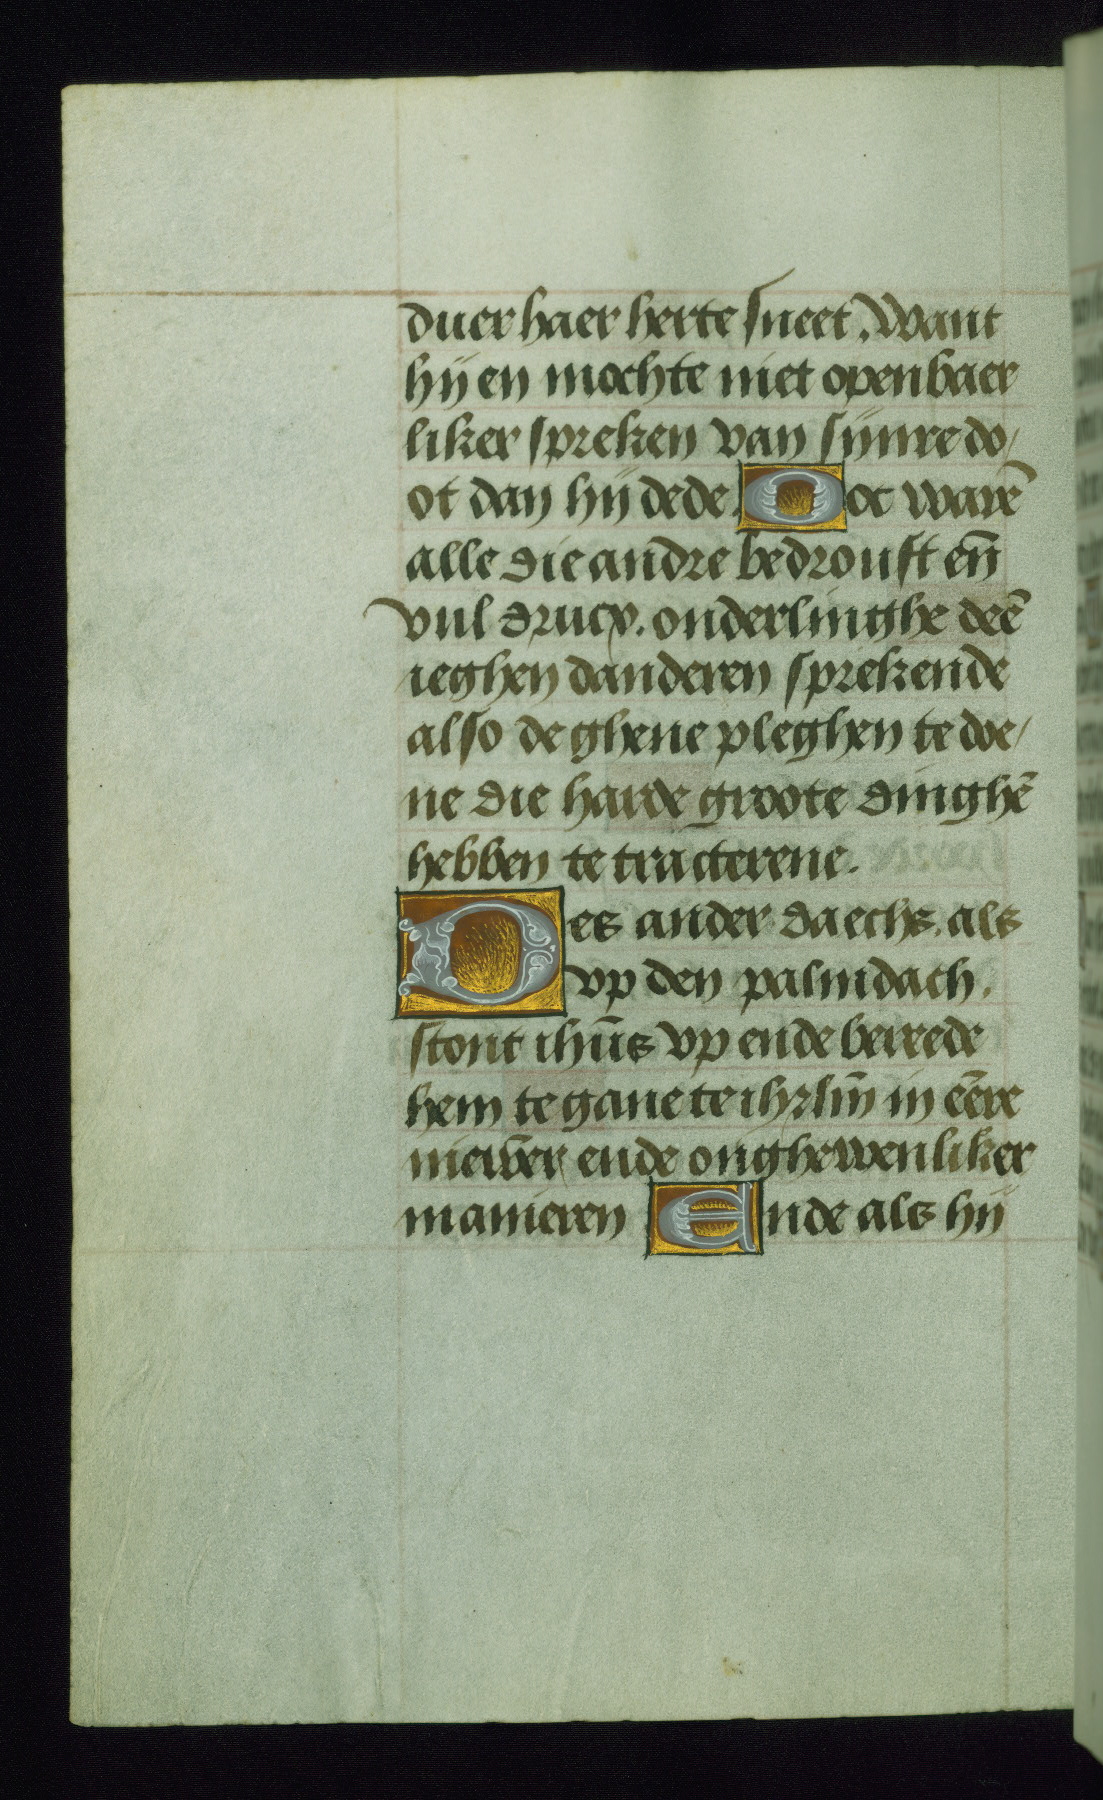 duer haer herte sneet. Want
hij en mochte niet openbaer
liker spreken van sijnre do/
ot dan hij dede. Oc warē
alle die andre bedrouft eñ
vul drucx. onderlinghe deē
ieghen danderen sprekende
also de ghene pleghen te doe/
ne die harde groote dinghē
hebben te tracterene.
Des ander daechs. als
vp den palmdach.
stont ihūs vp ende bereede
hem te gane te ihrlm̄ in eēre
niewer ende onghewenliker
manieren Ende als hij